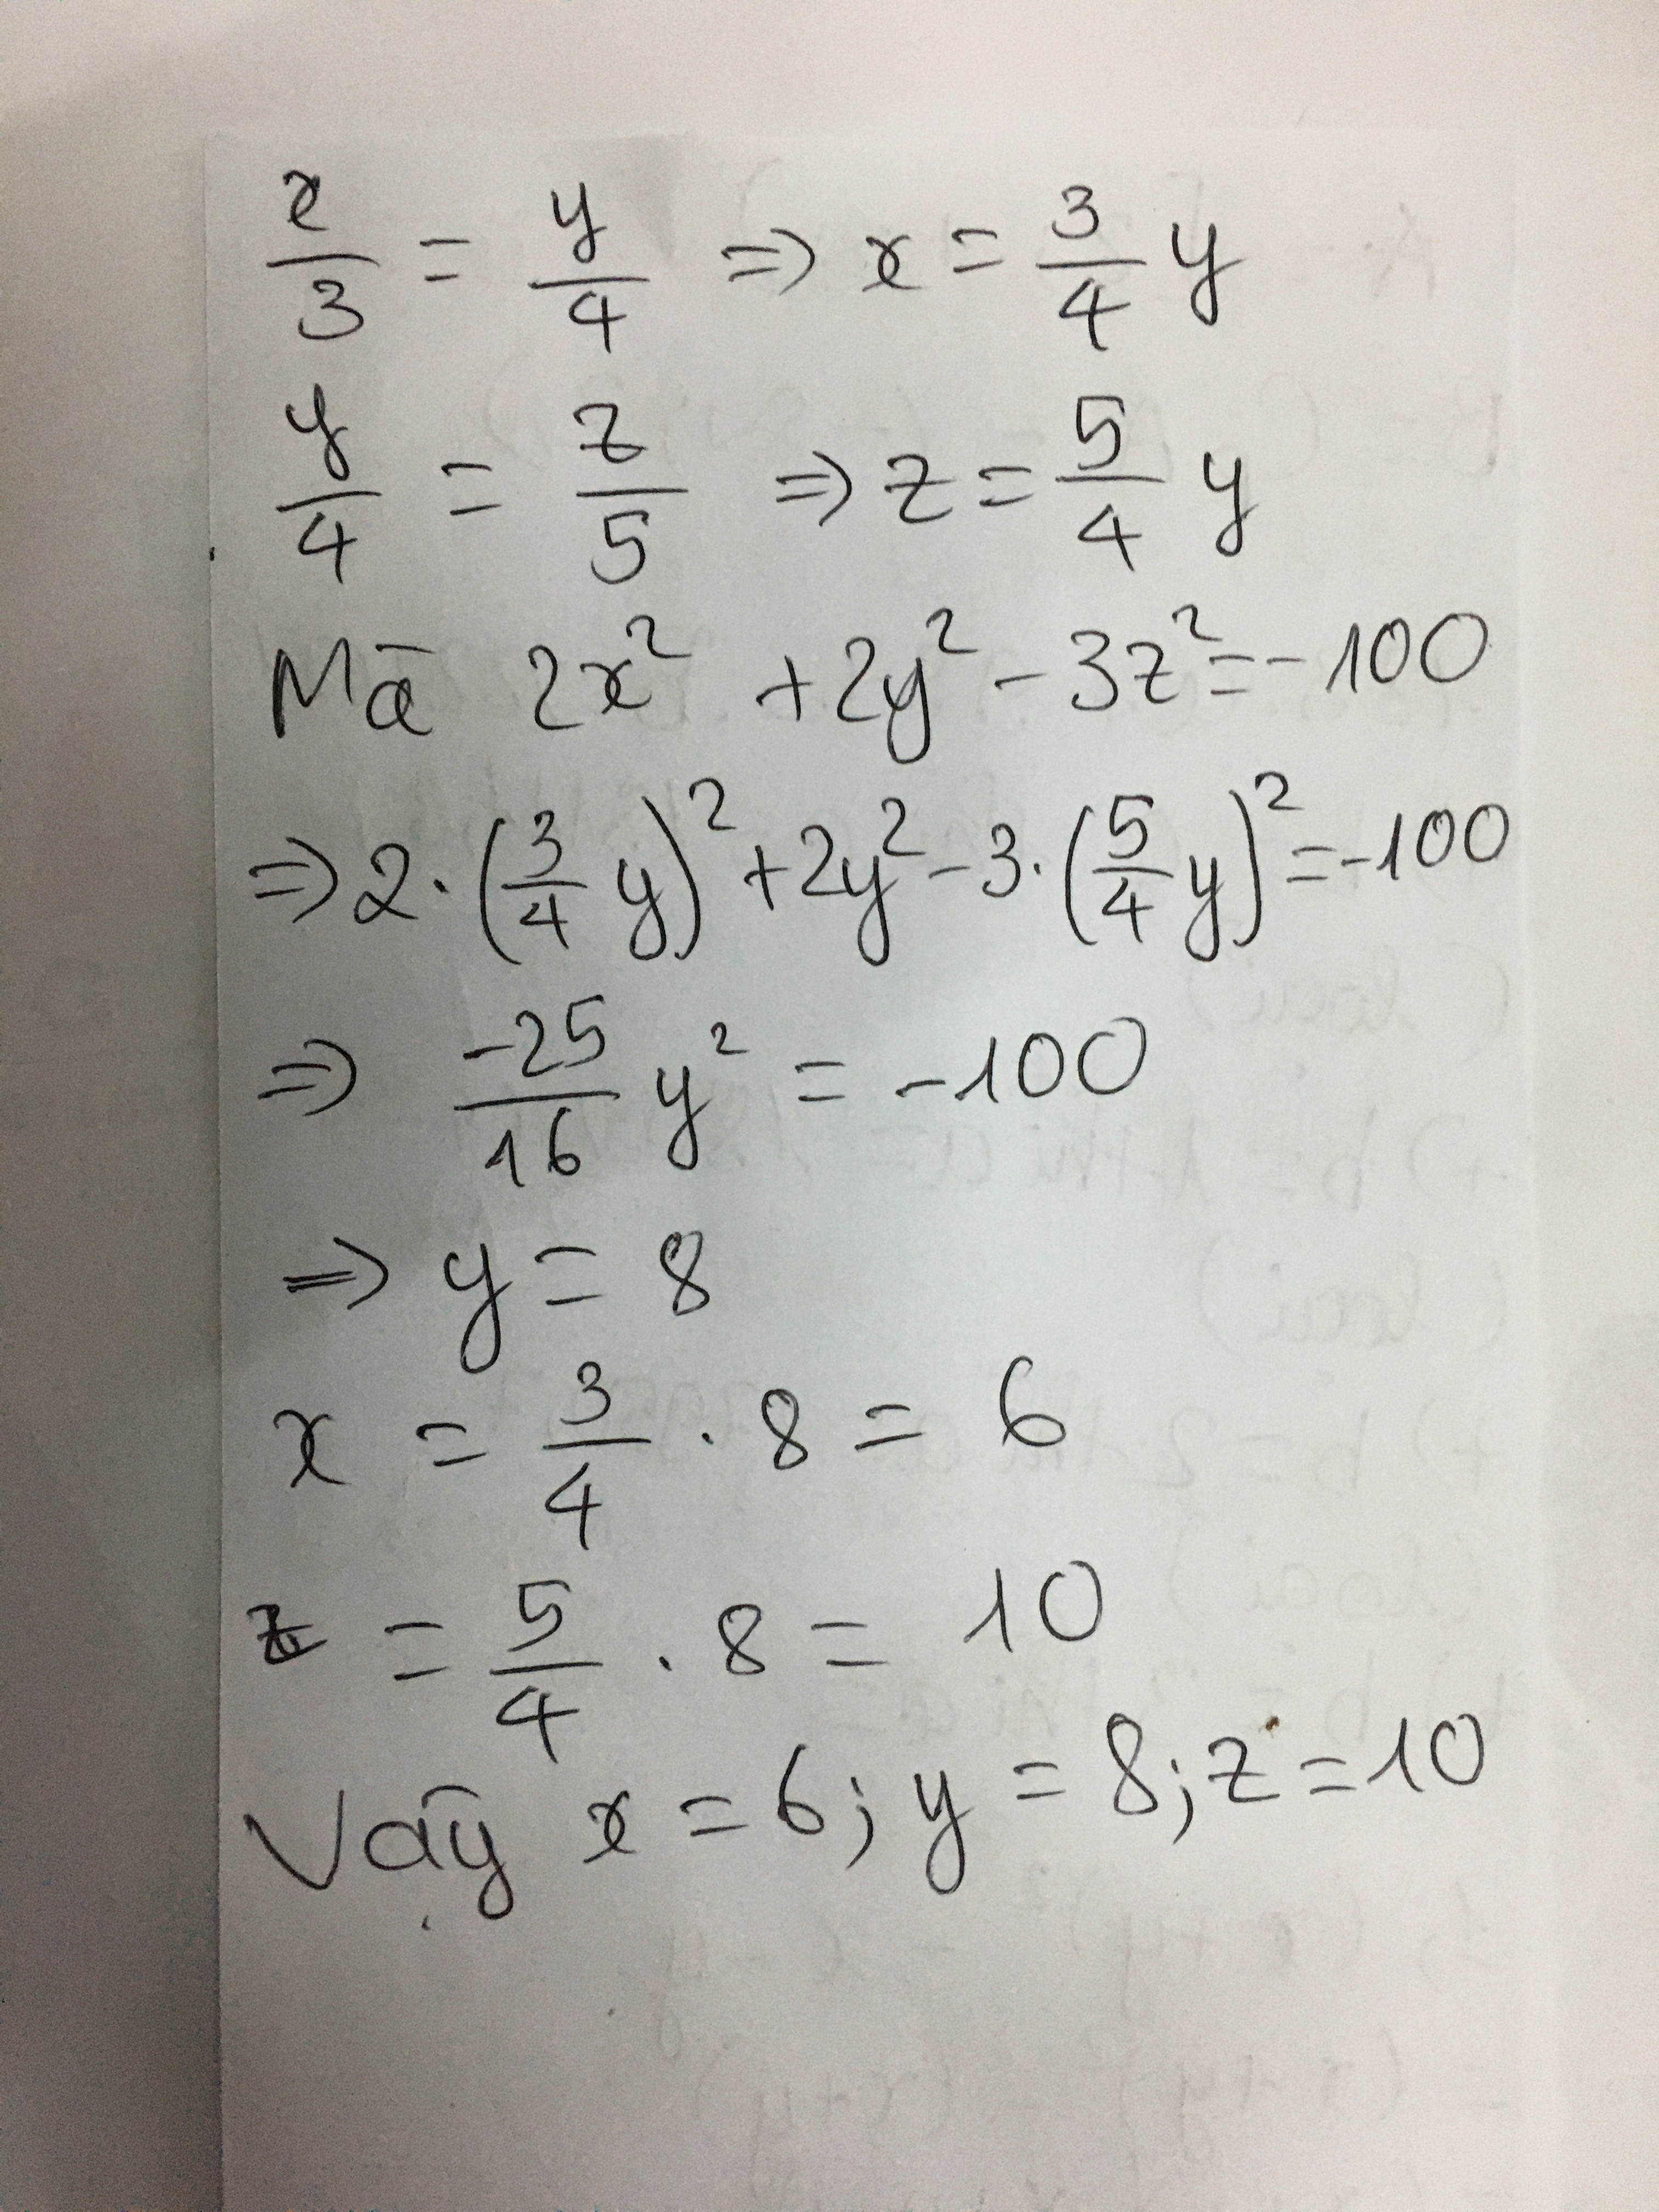 x/3 = y/4 => x = 3/4 y
y/4 = z/5 => z = 5/4 y
Mà 2x² + 2y² - 3z² = -100
=> 2 . (3/4 y)² + 2y² - 3 . (5/4 y)² = -100
=> -25/16 y² = -100
=> y = 8
x = 3/4 . 8 = 6
z = 5/4 . 8 = 10
Vậy x = 6; y = 8; z = 10